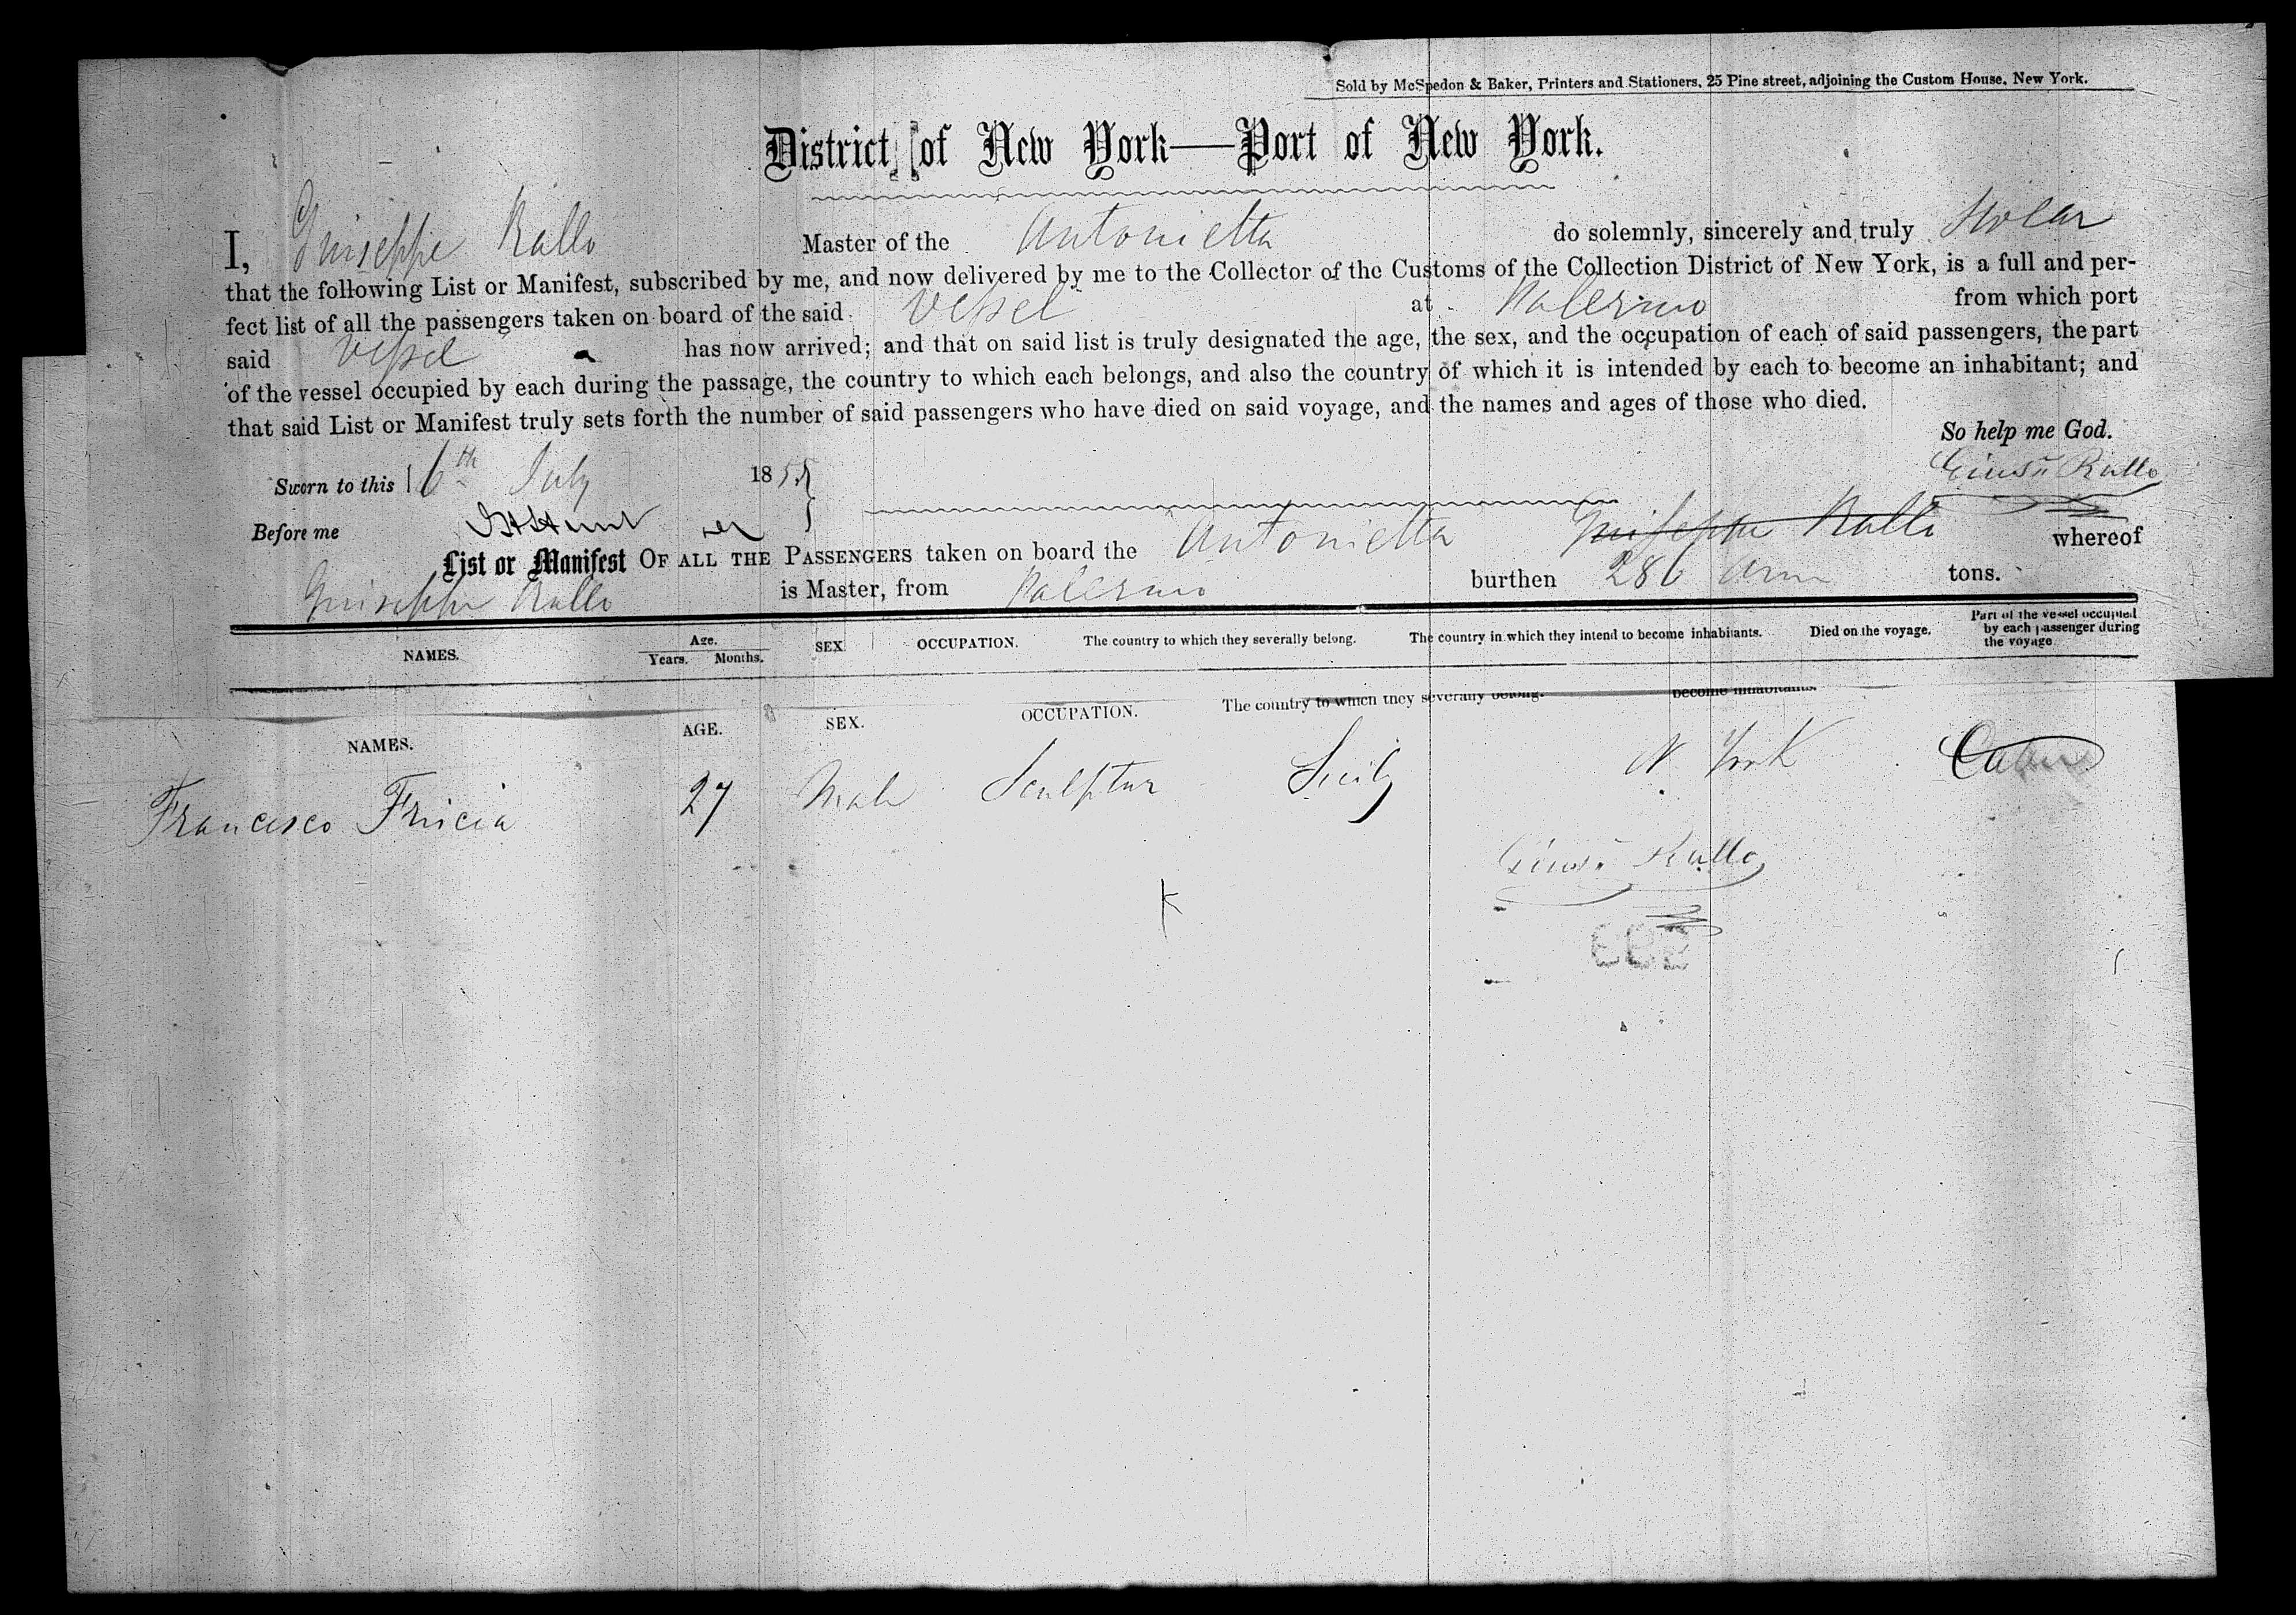 Sold by McSpedon & Baker, Printers and Stationers, 25 Pine street, adjoining the Custom House, New York.
District of New York—Port of New York.
I, Guiseppe Rallo Master of the Antonietta do solemnly, sincerely and truly swear
that the following List or Manifest, subscribed by me, and now delivered by me to the Collector of the Customs of the Collection District of New York, is a full and per-
fect list of all the passengers taken on board of the said vessel at Palermo from which port
said vessel has now arrived; and that on said list is truly designated the age, the sex, and the occupation of each of said passengers, the part
of the vessel occupied by each during the passage, the country to which each belongs, and also the country of which it is intended by each to become an inhabitant; and
that said List or Manifest truly sets forth the number of said passengers who have died on said voyage, and the names and ages of those who died.
So help me God.
Sworn to this 16th July 1855
Rallo
Before me
List or Manifest OF ALL THE PASSENGERS taken on board the Antonietta Guiseppe Rallo whereof
Guiseppe Rallo is Master, from Palermo burthen 286 tons.
NAMES. Age. Years. Months. SEX. OCCUPATION. The country to which they severally belong. The country in which they intend to become inhabitants. Died on the voyage. Part of the vessel occupied by each passenger during the voyage
NAMES. AGE. SEX. OCCUPATION. The country to which they severally belong. become inhabitants.
Francesco Fricia 27 Male Sculptur Sicily N York Cabin
Rallo
K